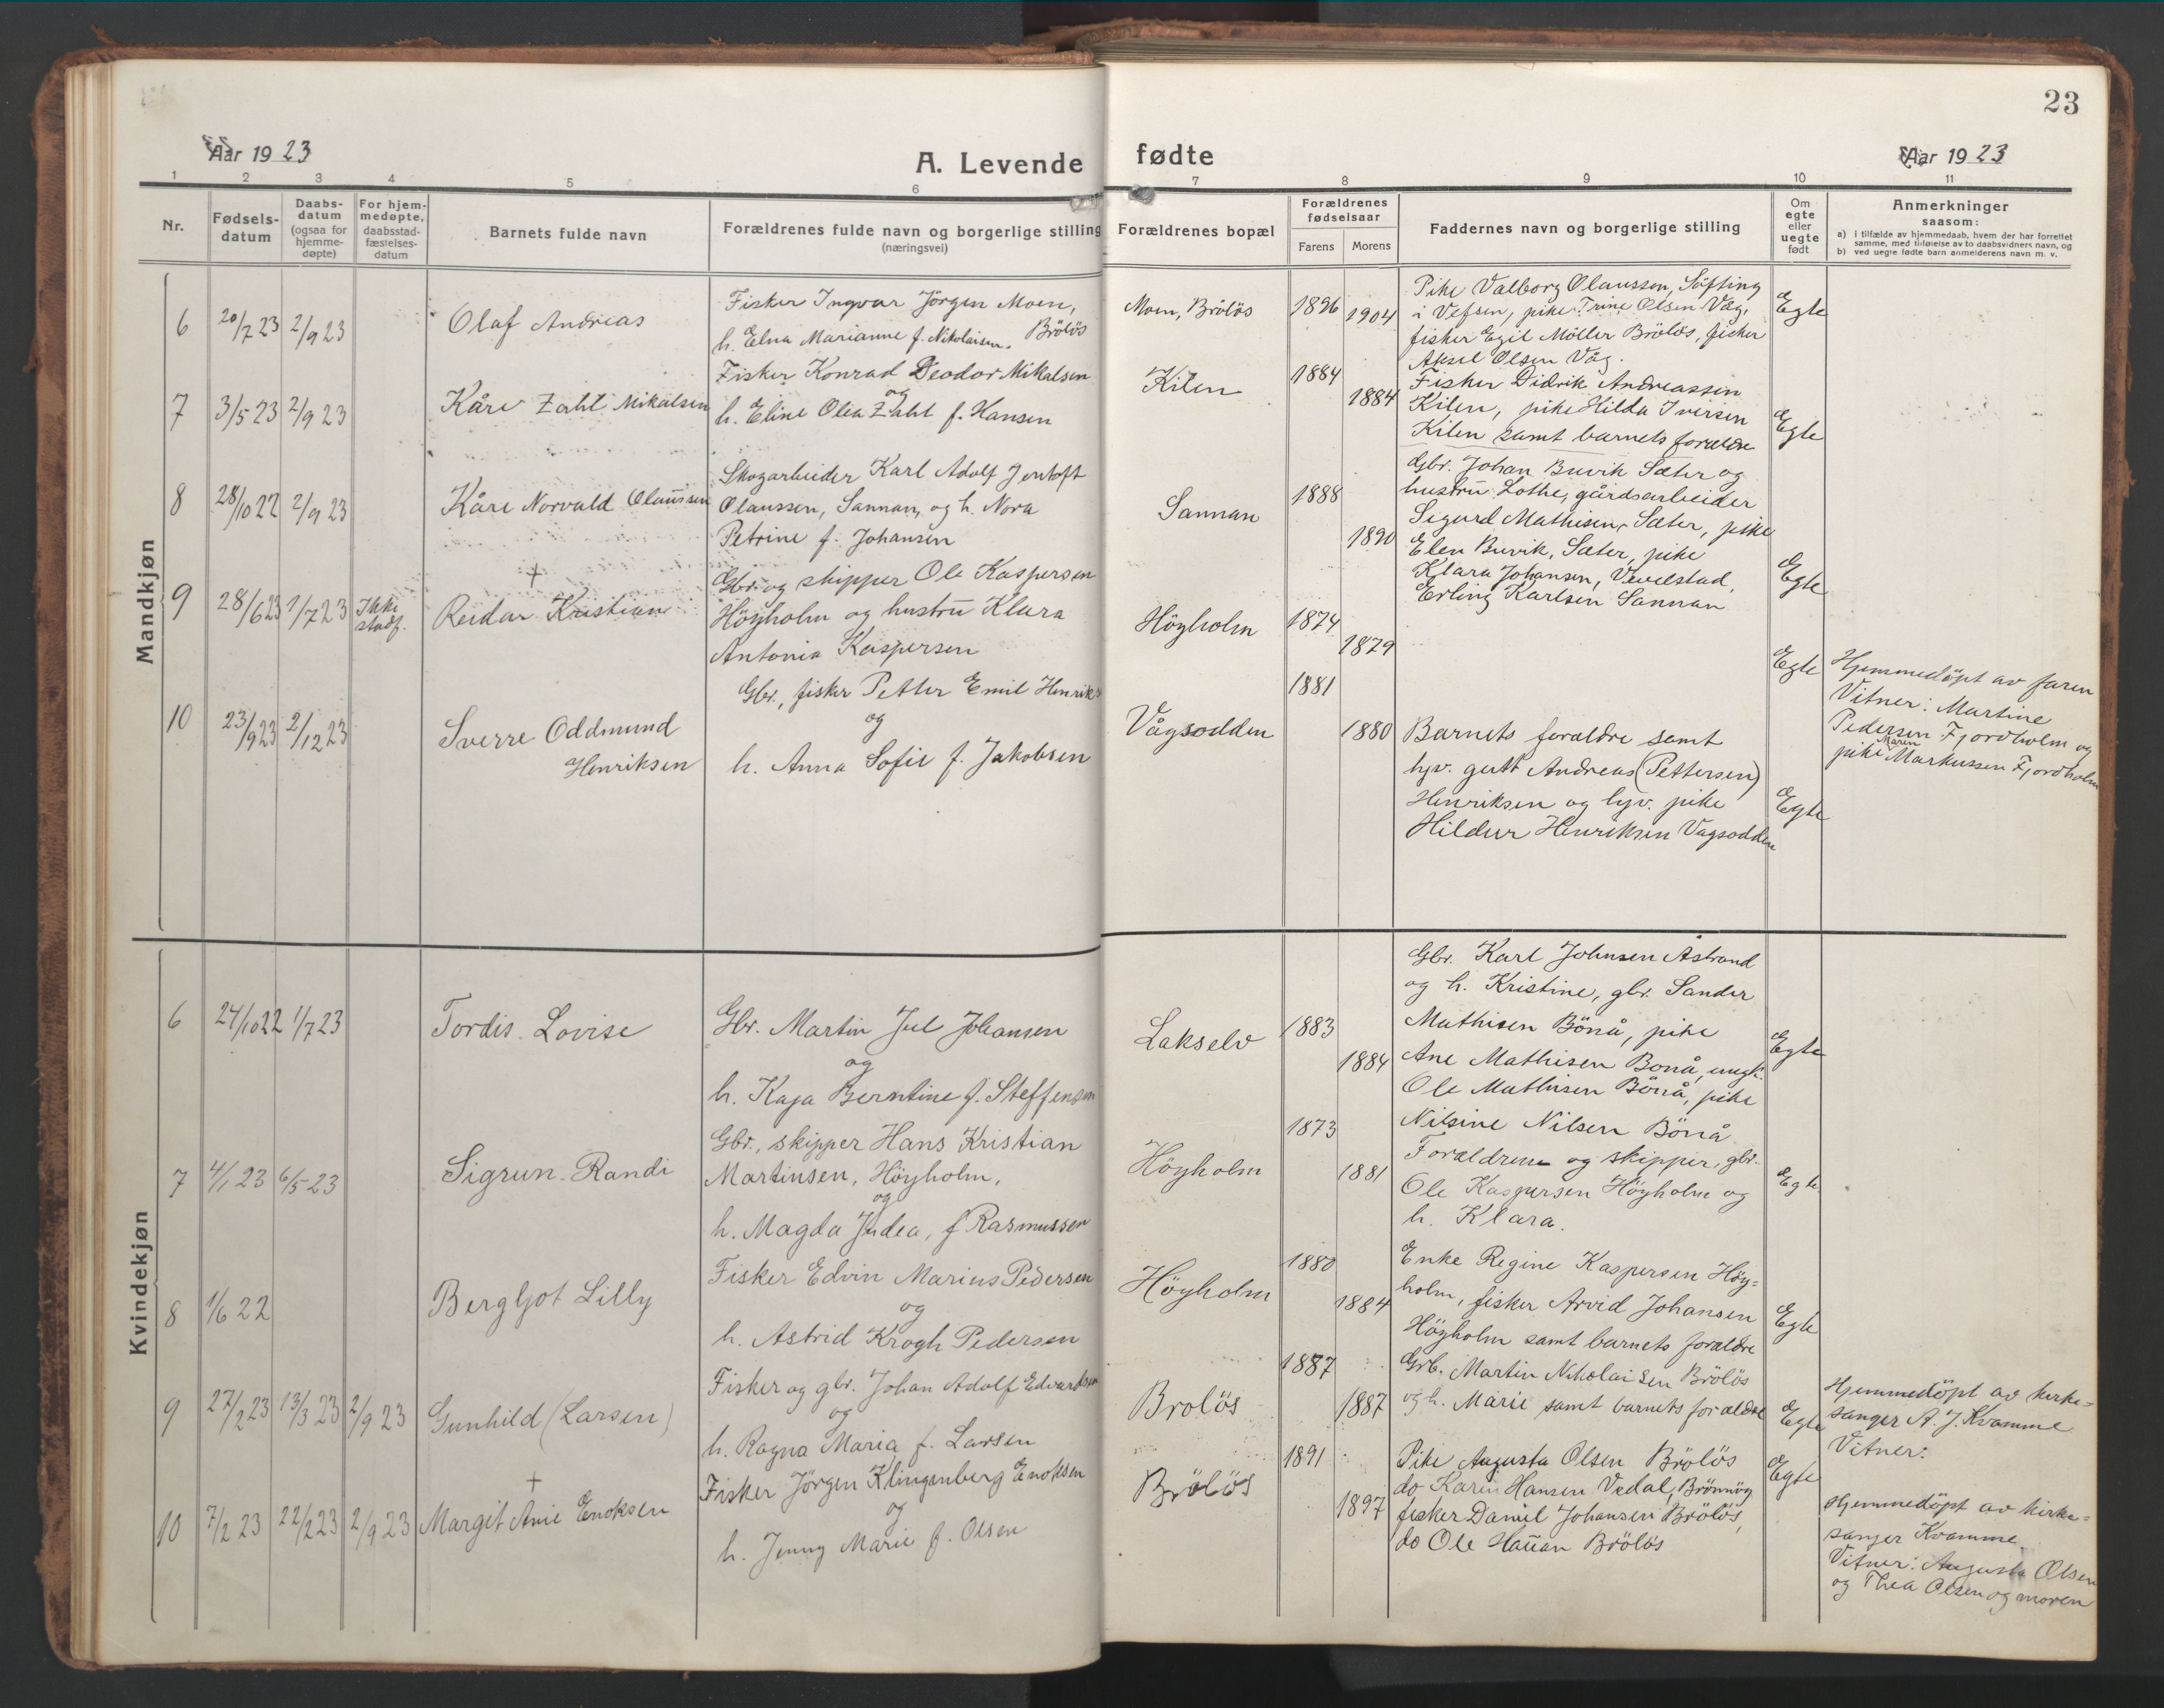 23
Aar 19 23
A. Levende
fødte
Aar 19 23
1 2 3 4 5 6 7 8 9 10 11
Nr.
Fødsels-
datum
Daabs-
datum
(ogsaa for
hjemme-
døpte)
For hjem-
medøpte,
daabsstad-
fæstelses-
datum
Barnets fulde navn
Forældrenes fulde navn og borgerlige stilling
(næringsvei)
Forældrenes bopæl
Forældrenes
fødselsaar
Farens Morens
Faddernes navn og borgerlige stilling
Om
egte
eller
uegte
født
Anmerkninger
saasom:
a) i tilfælde av hjemmedaab, hvem der har forrettet
samme, med tilføielse av to daabsvidners navn, og
b) ved uegte fødte barn anmelderens navn m. v.
Mandkjøn
6 20/7 23 2/9 23
Olaf Andreas
Fisker Ingvar Jörgen Moen,
h. Elna Marianne f. Nikolaisen. Brölös
Moen, Brölös
1896 1904
Pike Valborg Olaussen, Söfting
i Vefsen, pike Trine Olsen Våg,
fisker Egil Möller Brölös, fisker
Aksel Olsen Våg.
Egte
7 3/5 23 2/9 23
Kåre Zahl Mikalsen
Fisker Konrad Deodor Mikalsen
og
h. Eline Olea Zahl f. Hansen
Kilen
1884
1884
Fisker Didrik Andreassen
Kilen, pike Hilda Iversen
Kilen samt barnets forældre
Egte
8 28/10 22 2/9 23
Kåre Norvald Olaussen
Skogarbeider Karl Adolf Jentoft
Olaussen, Sannan, og h. Nora
Petrine f. Johansen
Sannan
1888
1890
Gbr. Johan Buvik Sæter og
hustru Lothe, gårdsarbeider
Sigurd Mathisen, Sæter, pike
Elen Buvik, Sæter, pike
Klara Johansen, Vevelstad,
Erling Karlsen Sannan
Egte
9 28/6 23 1/7 23 Ikke
stadf.
+
Reidar Kristian
Gbr. og skipper Ole Kaspersen
Höyholm og hustru Klara
Antonia Kaspersen
Höyholm
1874
1879
Egte
Hjemmedöpt av faren
Vitner: Martine
Pedersen Fjordholm og
pike Maren Markussen Fjordholm
10 23/9 23 2/12 23
Sverre Oddmund
Henriksen
Gbr., fisker Petter Emil Henriks
og
h. Anna Sofie f. Jakobsen
Vågsodden
1881
1880
Barnets forældre samt
hjv. gutt Andreas (Pettersen)
Henriksen og hjv. pike
Hildur Henriksen Vågsodden
Egte
Kvindekjøn
6 24/10 22 1/7 23
Tordis Lovise
Gbr. Martin Jul Johansen
og
h. Kaja Berntine f. Steffensen
Lakselv
1883
1884
Gbr. Karl Johnsen Åstrand
og h. Kristine, gbr. Sander
Mathisen Bönå, pike
Ane Mathisen Bönå, ungk.
Ole Mathisen Bönå, pike
Nilsine Nilsen Bönå
Egte
7 4/1 23 6/5 23
Sigrun Randi
Gbr., skipper Hans Kristian
Martinsen, Höyholm,
og
h. Magda Judea, f Rasmussen
Höyholm
1873
1881
Forældrene og skipper, gbr.
Ole Kaspersen Höyholm og
h. Klara.
Egte
8 1/6 22
Bergljot Lilly
Fisker Edvin Marius Pedersen
og
h. Astrid Krogh Pedersen
Höyholm
1880
1884
Enke Regine Kaspersen Höy=
holm, fisker Arvid Johansen
Höyholm samt barnets forældre
Egte
9 27/2 23 13/3 23 2/9 23
Gunhild (Larsen)
Fisker og gbr. Johan Adolf Edvardsen
og
h. Ragna Maria f. Larsen
Brolös
1887
1887
Grb. Martin Nikolaisen Brölös
og h. Marie samt barnets forældre
Egte
Hjemmedöpt av kirke=
sanger A. J. Kvamme
Vitner:
10 7/2 23 22/2 23 2/9 23
+
Margit Anie Enoksen
Fisker Jörgen Klingenberg Enoksen
og
h. Jenny Marie f. Olsen
Brölös
1891
1897
Pike Augusta Olsen Brölös
do Karin Hansen Vedal, Brönnöy
fisker Daniel Johansen Brölös,
do Ole Hauan Brölös
Egte
Hjemmedöpt av kirke=
sanger Kvamme.
Vitner: Augusta Olsen
og Thea Olsen og moren